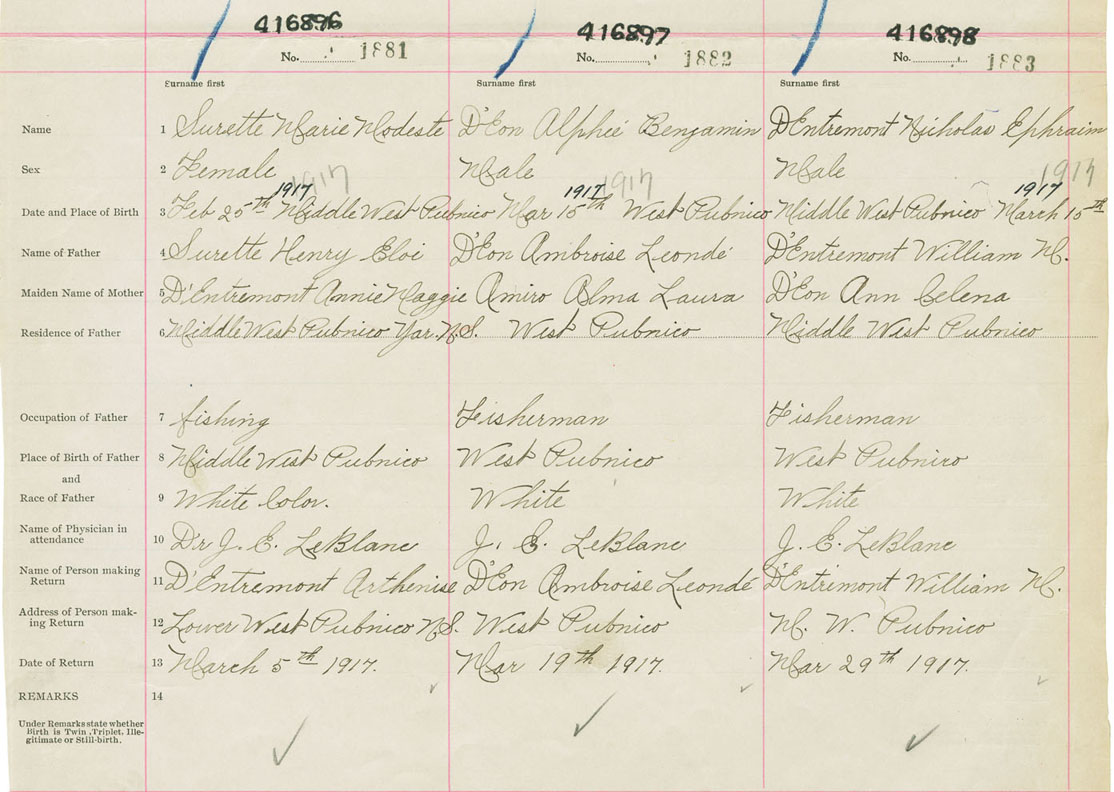 416896 416897 416898
No. 1881 No. 1882 No. 1883
Surname first Surname first Surname first
Name 1 Surette Marie Modeste D'Eon Alphée Benjamin D'Entremont Nicholas Ephraim
Sex 2 Female Male Male
1917 1917 1917 1917 1917 1917
Date and Place of Birth 3 Feb 25th Middle West Pubnico Mar 15th West Pubnico Middle West Pubnico March 15th
Name of Father 4 Surette Henry Eloi D'Eon Ambroise Leondé D'Entremont William M.
Maiden Name of Mother 5 D'Entremont Annie Maggie Amiro Alma Laura D'Eon Ann Celena
Residence of Father 6 Middle West Pubnico Yar. N.S. West Pubnico Middle West Pubnico
Occupation of Father 7 fishing Fisherman Fisherman
Place of Birth of Father 8 Middle West Pubnico West Pubnico West Pubnico
and
Race of Father 9 White Color. White White
Name of Physician in
attendance 10 Dr J. E. LeBlanc J. E. LeBlanc J. E. LeBlanc
Name of Person making
Return 11 D'Entremont Arthenise D'Eon Ambroise Leondé D'Entrimont William M.
Address of Person mak-
ing Return 12 Lower West Pubnico N.S. West Pubnico M. W. Pubnico
Date of Return 13 March 5th 1917. Mar 19th 1917. Mar 29th 1917.
REMARKS 14
Under Remarks state whether
Birth is Twin, Triplet, Ille-
gitimate or Still-birth.